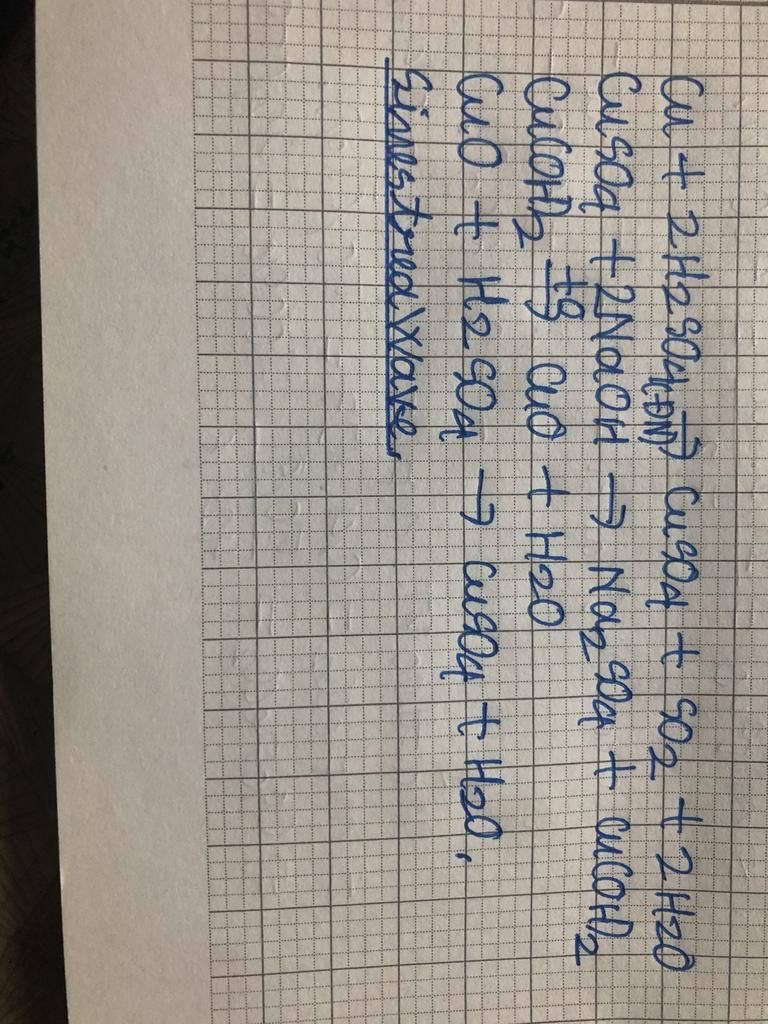 Cu + 2H2SO4(ĐN) → CuSO4 + SO2 + 2H2O
CuSO4 + 2NaOH → Na2SO4 + Cu(OH)2
Cu(OH)2 +to→ CuO + H2O
CuO + H2SO4 → CuSO4 + H2O.
SinestreaWave